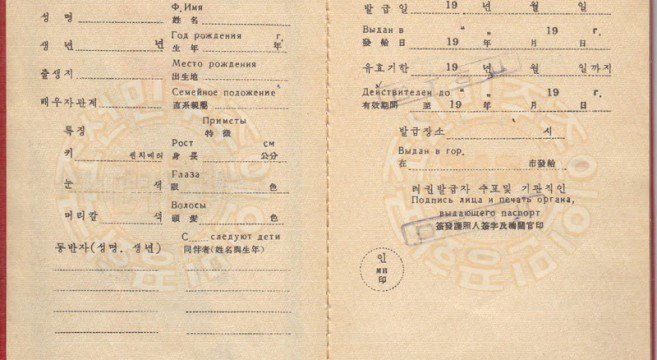 Ф, Имя
성 명 姓 名
Год рождения г.
생 년 년 生 年 年
Место рождения
출생지 出生地
Семейное положение
배우자관계 直系親屬
Приметы
특징 特 徵
Рост см
키 센치메터 身 長 公分
Глаза
눈 색 眼 色
Волосы
머리칼 색 頭 髮 色
С следуют дети
동반자(성명, 생년) 同伴者(姓名與生年)
발 급 일 19 년 월 일
Выдан в „ „ 19 г.
發 給 日 19 年 月 日
유효기한 19 년 월 일까지
Действителен до “ „ 19 г.
有效期間 至 19 年 月 日
발급장소 시
Выдан в гор.
在 市發給
려권발급자 수표및 기관직인
Подпись лица и печать органа,
выдающего паспорт
簽發護照人簽字及機關官印
인
мп
印